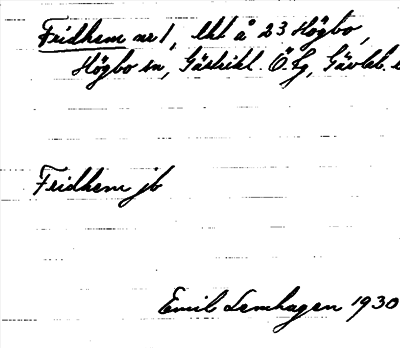 Fridhem nr 1, lht å 23 Högbo,
Högbo sn, Gästrikl. Ö. tg, Gävleb. l
Fridhem jb
Emil Lemhagen 1930